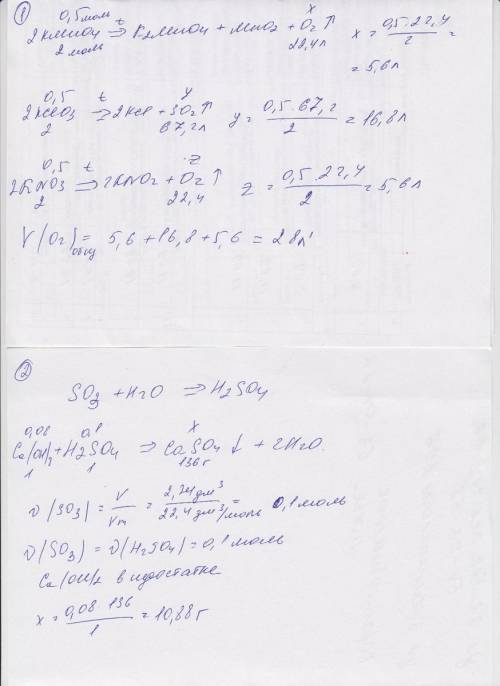 ①
0,5 моль t x
2KMnO4 ⇒ K2MnO4 + MnO2 + O2↑ x = 0,5·22,4 / 2 =
2 моль 22,4л = 5,6л
0,5 t y
2KClO3 ⇒ 2KCl + 3O2↑ y = 0,5·67,2 / 2 = 16,8л
2 67,2л
0,5 t z
2KNO3 ⇒ 2KNO2 + O2↑ z = 0,5·22,4 / 2 = 5,6л
2 22,4
V(O2)общ = 5,6 + 16,8 + 5,6 = 28л
②
SO3 + H2O ⇒ H2SO4
0,08 0,1 x
Ca(OH)2 + H2SO4 ⇒ CaSO4↓ + 2H2O.
1 1 136г
ν(SO3) = V / Vm = 2,24 дм³ / 22,4 дм³/моль = 0,1 моль
ν(SO3) = ν(H2SO4) = 0,1 моль
Ca(OH)2 в недостатке
x = 0,08·136 / 1 = 10,88г